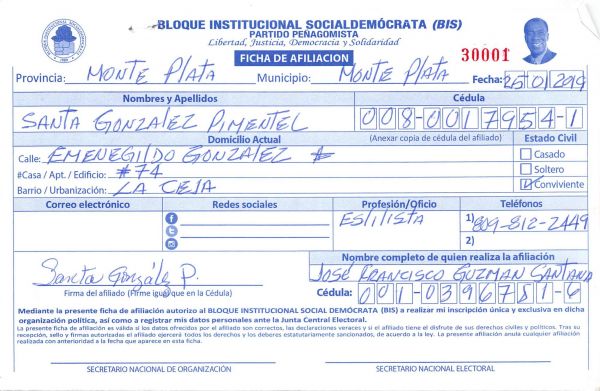 BLOQUE INSTITUCIONAL SOCIALDEMÓCRATA (BIS)
PARTIDO PEÑAGOMISTA
Libertad, Justicia, Democracia y Solidaridad
FICHA DE AFILIACION
30001
Provincia: MONTE PLATA Municipio: MONTE PLATA Fecha: 25/01/2019
Nombres y Apellidos Cédula
SANTA GONZALEZ PIMENTEL 008-0017954-1
Domicilio Actual (Anexar copia de cédula del afiliado) Estado Civil
Calle: EMENEGILDO GONZALEZ Casado
#Casa / Apt. / Edificio: #74 Soltero
Barrio / Urbanización: LA CEJA Conviviente
Correo electrónico Redes sociales Profesión/Oficio Teléfonos
ESTILISTA 1) 809-812-2449
2)
Nombre completo de quien realiza la afiliación
Santa González P. JOSÉ FRANCISCO GUZMAN SANTANA
Firma del afiliado (Firme igual que en la Cédula) Cédula: 001-0396781-6
Mediante la presente ficha de afiliación autorizo al BLOQUE INSTITUCIONAL SOCIAL DEMÓCRATA (BIS) a realizar mi inscripción única y exclusiva en dicha
organización política, así como a registrar mis datos personales ante la Junta Central Electoral.
La presente ficha de afiliación es válida si los datos ofrecidos por el afiliado son correctos, las declaraciones veraces y si el afiliado tiene el disfrute de sus derechos civiles y políticos. Tras su
recepción, sello y firmas autorizadas el afiliado ejercerá todos los derechos y los deberes estatutariamente sancionados, de acuerdo a la ley. La presente afiliación anula cualquier afiliación
realizada con anterioridad a la fecha que aparece en esta ficha.
SECRETARIO NACIONAL DE ORGANIZACIÓN SECRETARIO NACIONAL ELECTORAL